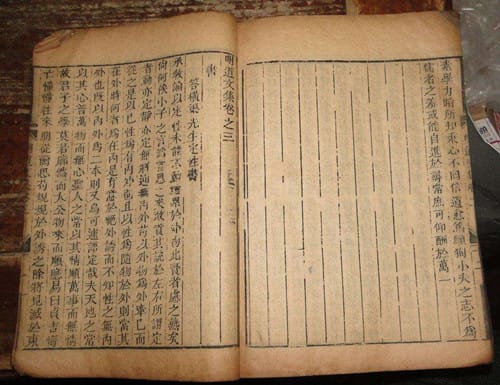 素學力蹈所知秉心不回信道愈篤狥小夫之志不爲
儒者之羞或能自進於尋常庶可仰酬於萬一
明道文集卷之三
書
答橫渠先生定性書
承敎諭以定性未能不動猶累於外物此賢者慮之熟矣
尚何俟小子之言然嘗思之矣敢貢其說於左右所謂定
者動亦定靜亦定無將迎無內外苟以外物爲外牽己而
從之是以己性爲有內外也且以性爲隨物於外則當其
在外時何者爲在內是有意於絶外誘而不知性之無內
外也既以內外爲二本則又烏可遽語定哉夫天地之常
以其心普萬物而無心聖人之常以其情順萬事而無情
故君子之學莫若廓然而大公物來而順應易曰貞吉悔
亡憧憧往來朋從爾思苟規規於外誘之除將見滅於東